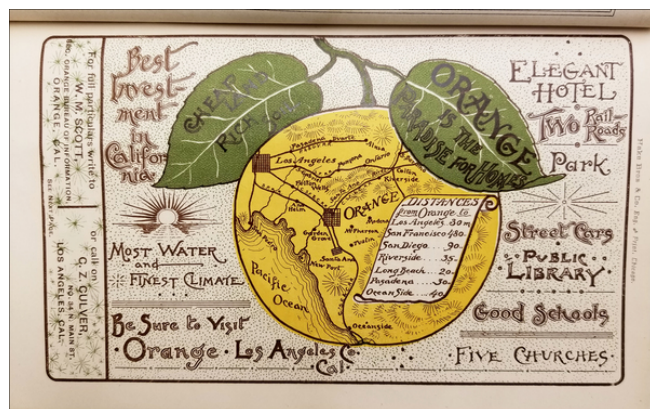 For full particulars write to
W. M. SCOTT,
Sec. ORANGE BUREAU OF INFORMATION,
ORANGE, CAL.
SEE NEXT PAGE.
or call on
C. Z. CULVER,
NO. 34 N. MAIN ST.
LOS ANGELES, CAL.
Best
Invest-
ment
in
Califor
nia.
CHEAP LAND
RICH SOIL
ORANGE
IS THE
PARADISE FOR HOMES
ELEGANT
HOTEL
Two Rail-
Roads
Park
Street Cars
PUBLIC
LIBRARY
Good Schools
FIVE CHURCHES.
MOST WATER
and
FINEST CLIMATE
Be Sure to Visit
Orange Los Angeles Co.
Cal.
Pasadena
Los Angeles
Pomona
Ontario
Riverside
Anaheim
ORANGE
Garden
Grove
McPherson
Tustin
Santa Ana
New Port
Pacific
Ocean
Oceanside
DISTANCES
from Orange to
Los Angeles 30 m
San Francisco 480.
San Diego. 90.
Riverside 35.
Long Beach 20
Pasadena 30.
Ocean Side 40